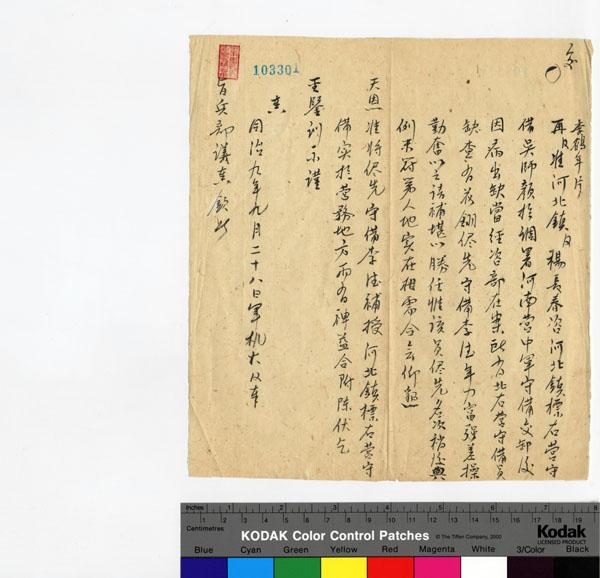 李鶴年片
再准河北鎮臣楊長春咨河北鎮標右營守
備吳師顏於調署河南營中軍守備交卸後
因病出缺當經咨部在案所有北右營守備員
缺查有花翎侭先守備李法年力富強差操
勤奮以之請補堪以勝任惟該員侭先名次稍後與
例未符第人地實在相需合無仰懇
天恩准將侭先守備李法補授河北鎮標右營守
備實於營務地方兩有裨益合附陳伏乞
聖鑒訓示謹
奏
同治九年九月二十八日軍機大臣奉
旨兵部議奏欽此
103301
Inches 1 2 3 4 5 6 7 8
Centimetres 1 2 3 4 5 6 7 8 9 10 11 12 13 14 15 16 17 18 19
KODAK Color Control Patches
© The Tiffen Company, 2000
Kodak
LICENSED PRODUCT
Blue Cyan Green Yellow Red Magenta White 3/Color Black